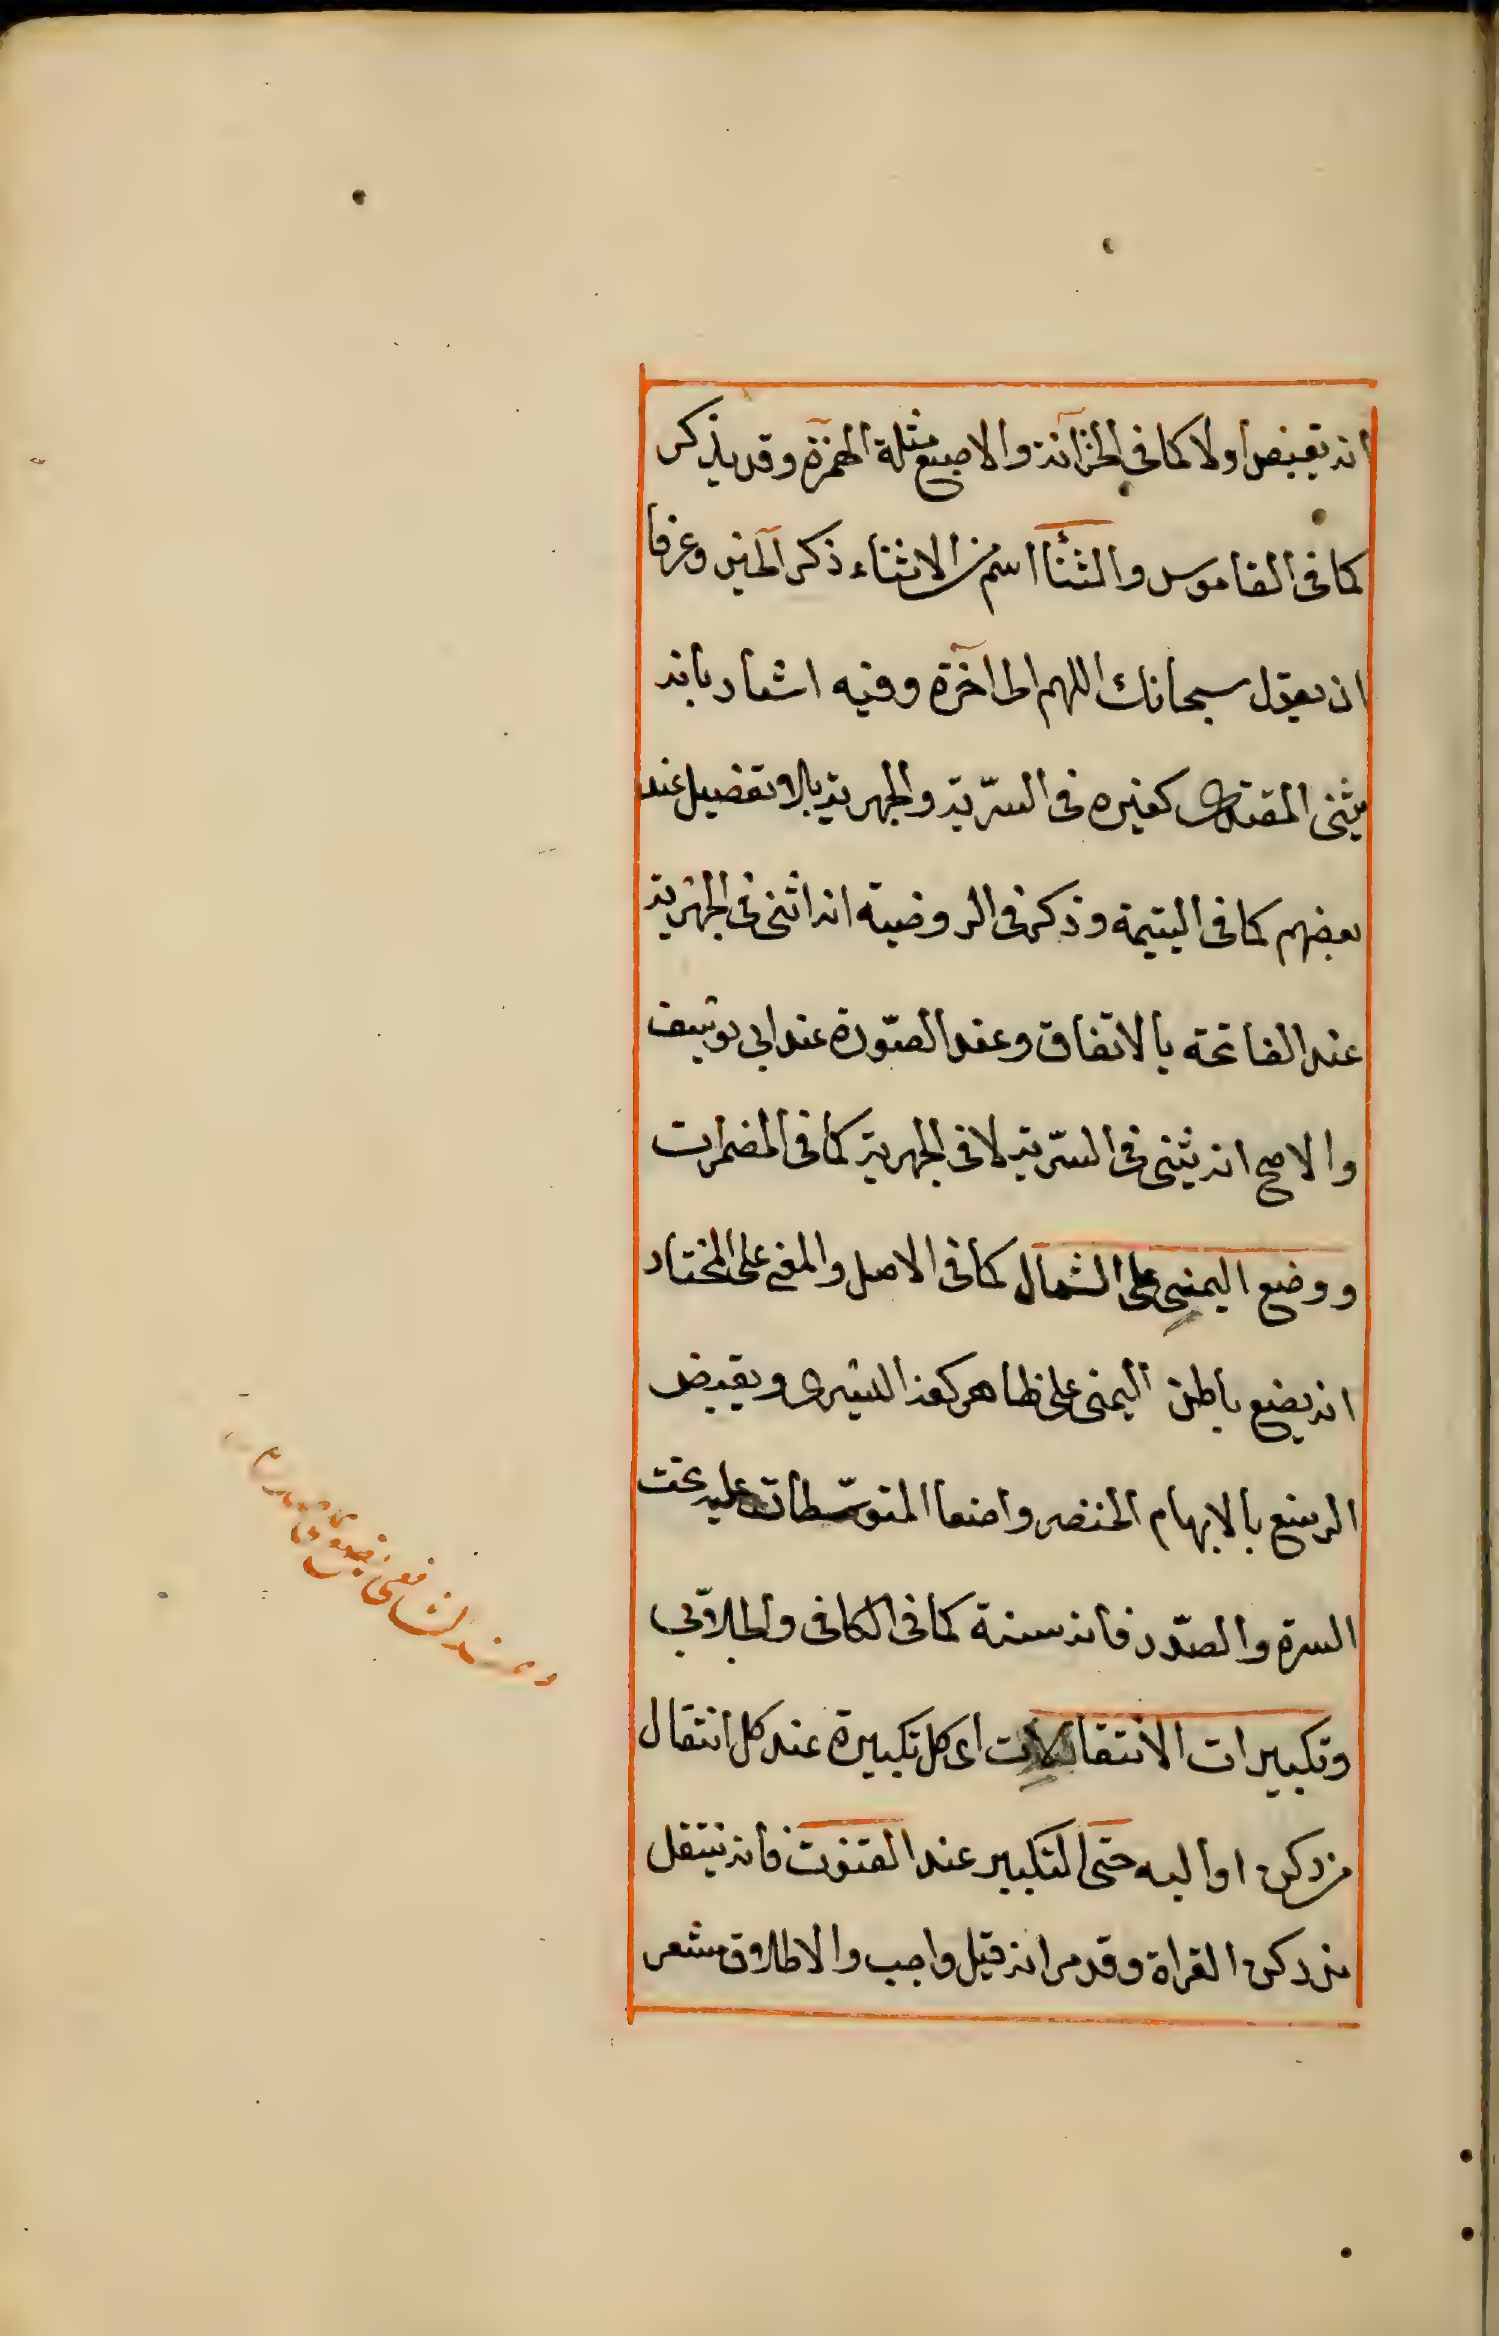 انه يقبض اولا كما في الخزانة والاصبع مثلة الهمزة وقد يذكر
كما في القاموس والثنا اسم من الاثناء ذكر الخير وعرفا
ان يقول سبحانك اللهم الى اخرة وفيه اشعار بانه
يثنى المقتدى كغيره في السرّية والجهرية بلا تفضيل عند
بعضهم كما في اليتيمة وذكر في الروضة انه اثنى في الجهرية
عند الفاتحة بالاتفاق وعند السّورة عند ابى يوسف
والاصح انه يثنى في السّرية لا في الجهرية كما في المضمرات
ووضع اليمنى على الشمال كما في الاصل والمغنى على المختار
انه يضع باطن اليمنى على ظاهر كفه اليسرى ويقبض
الرسغ بالابهام الخنصر واضعا المتوسّطات عليه تحت
السرة والصّدر فانه سنة كما في الكافى والجلابّى
وتكبيرات الانتقالات اى كل تكبيرة عند كل انتقال
من ركن او اليه حتى التكبير عند القنوت فانه ينتقل
من ركن القراة وقد مر انه قيل واجب والاطلاق مشعر
وعند الشافعى